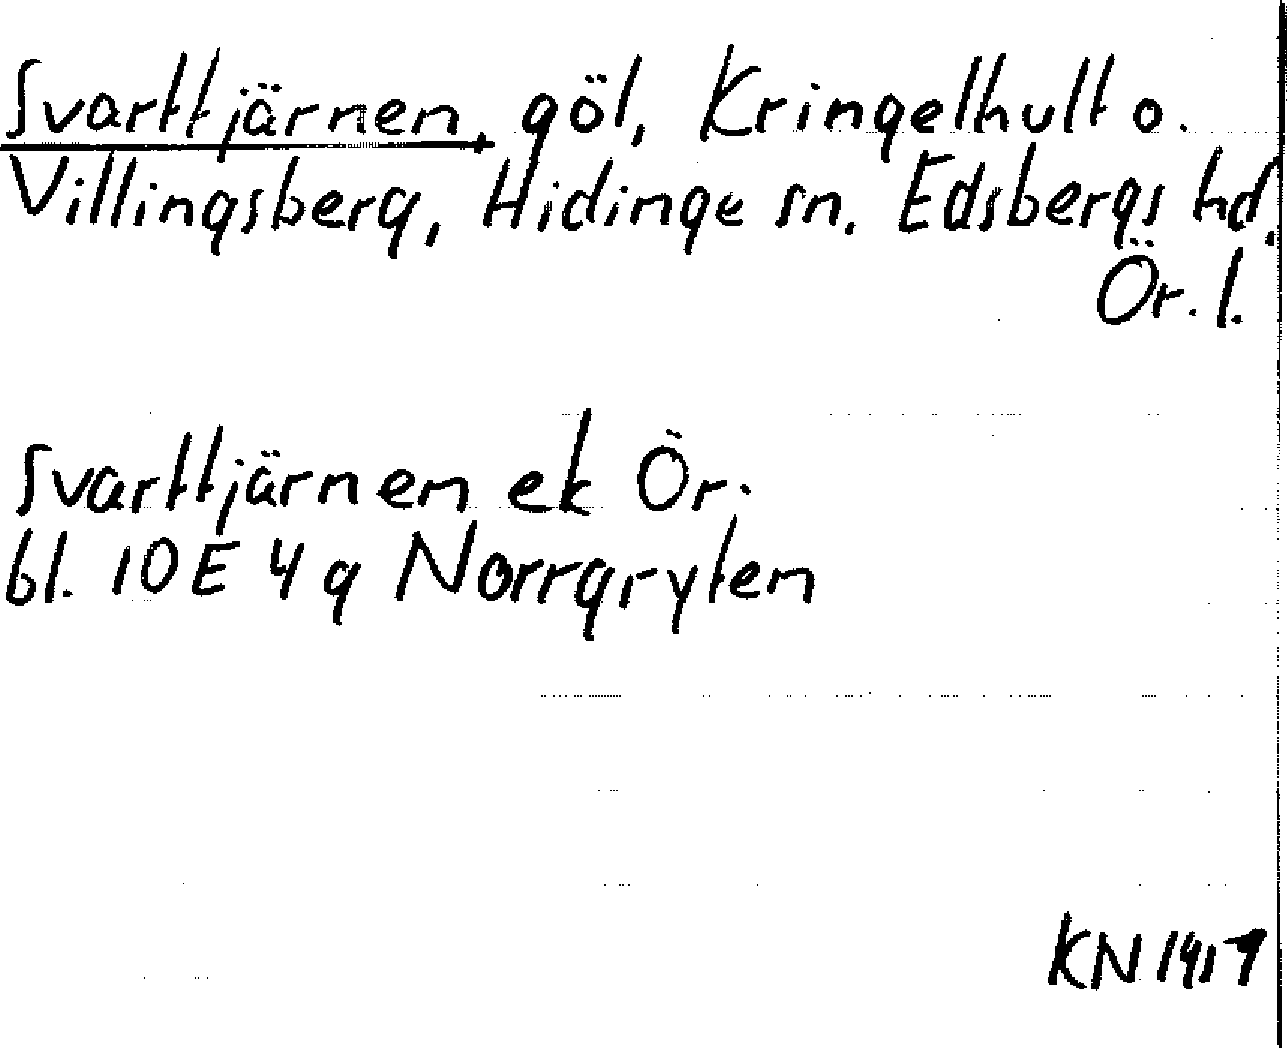 Svarttjärnen, göl, Kringelhult o.
Villingsberg, Hidinge sn. Edsbergs hd.
Ör. l.
Svarttjärnen ek Ör.
bl. 10 E 4 g Norrgryten
KN